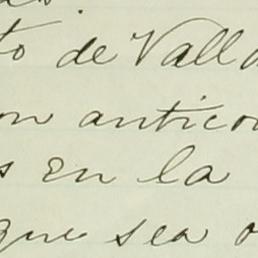 to de Valla
on antico
s en la
que sea o